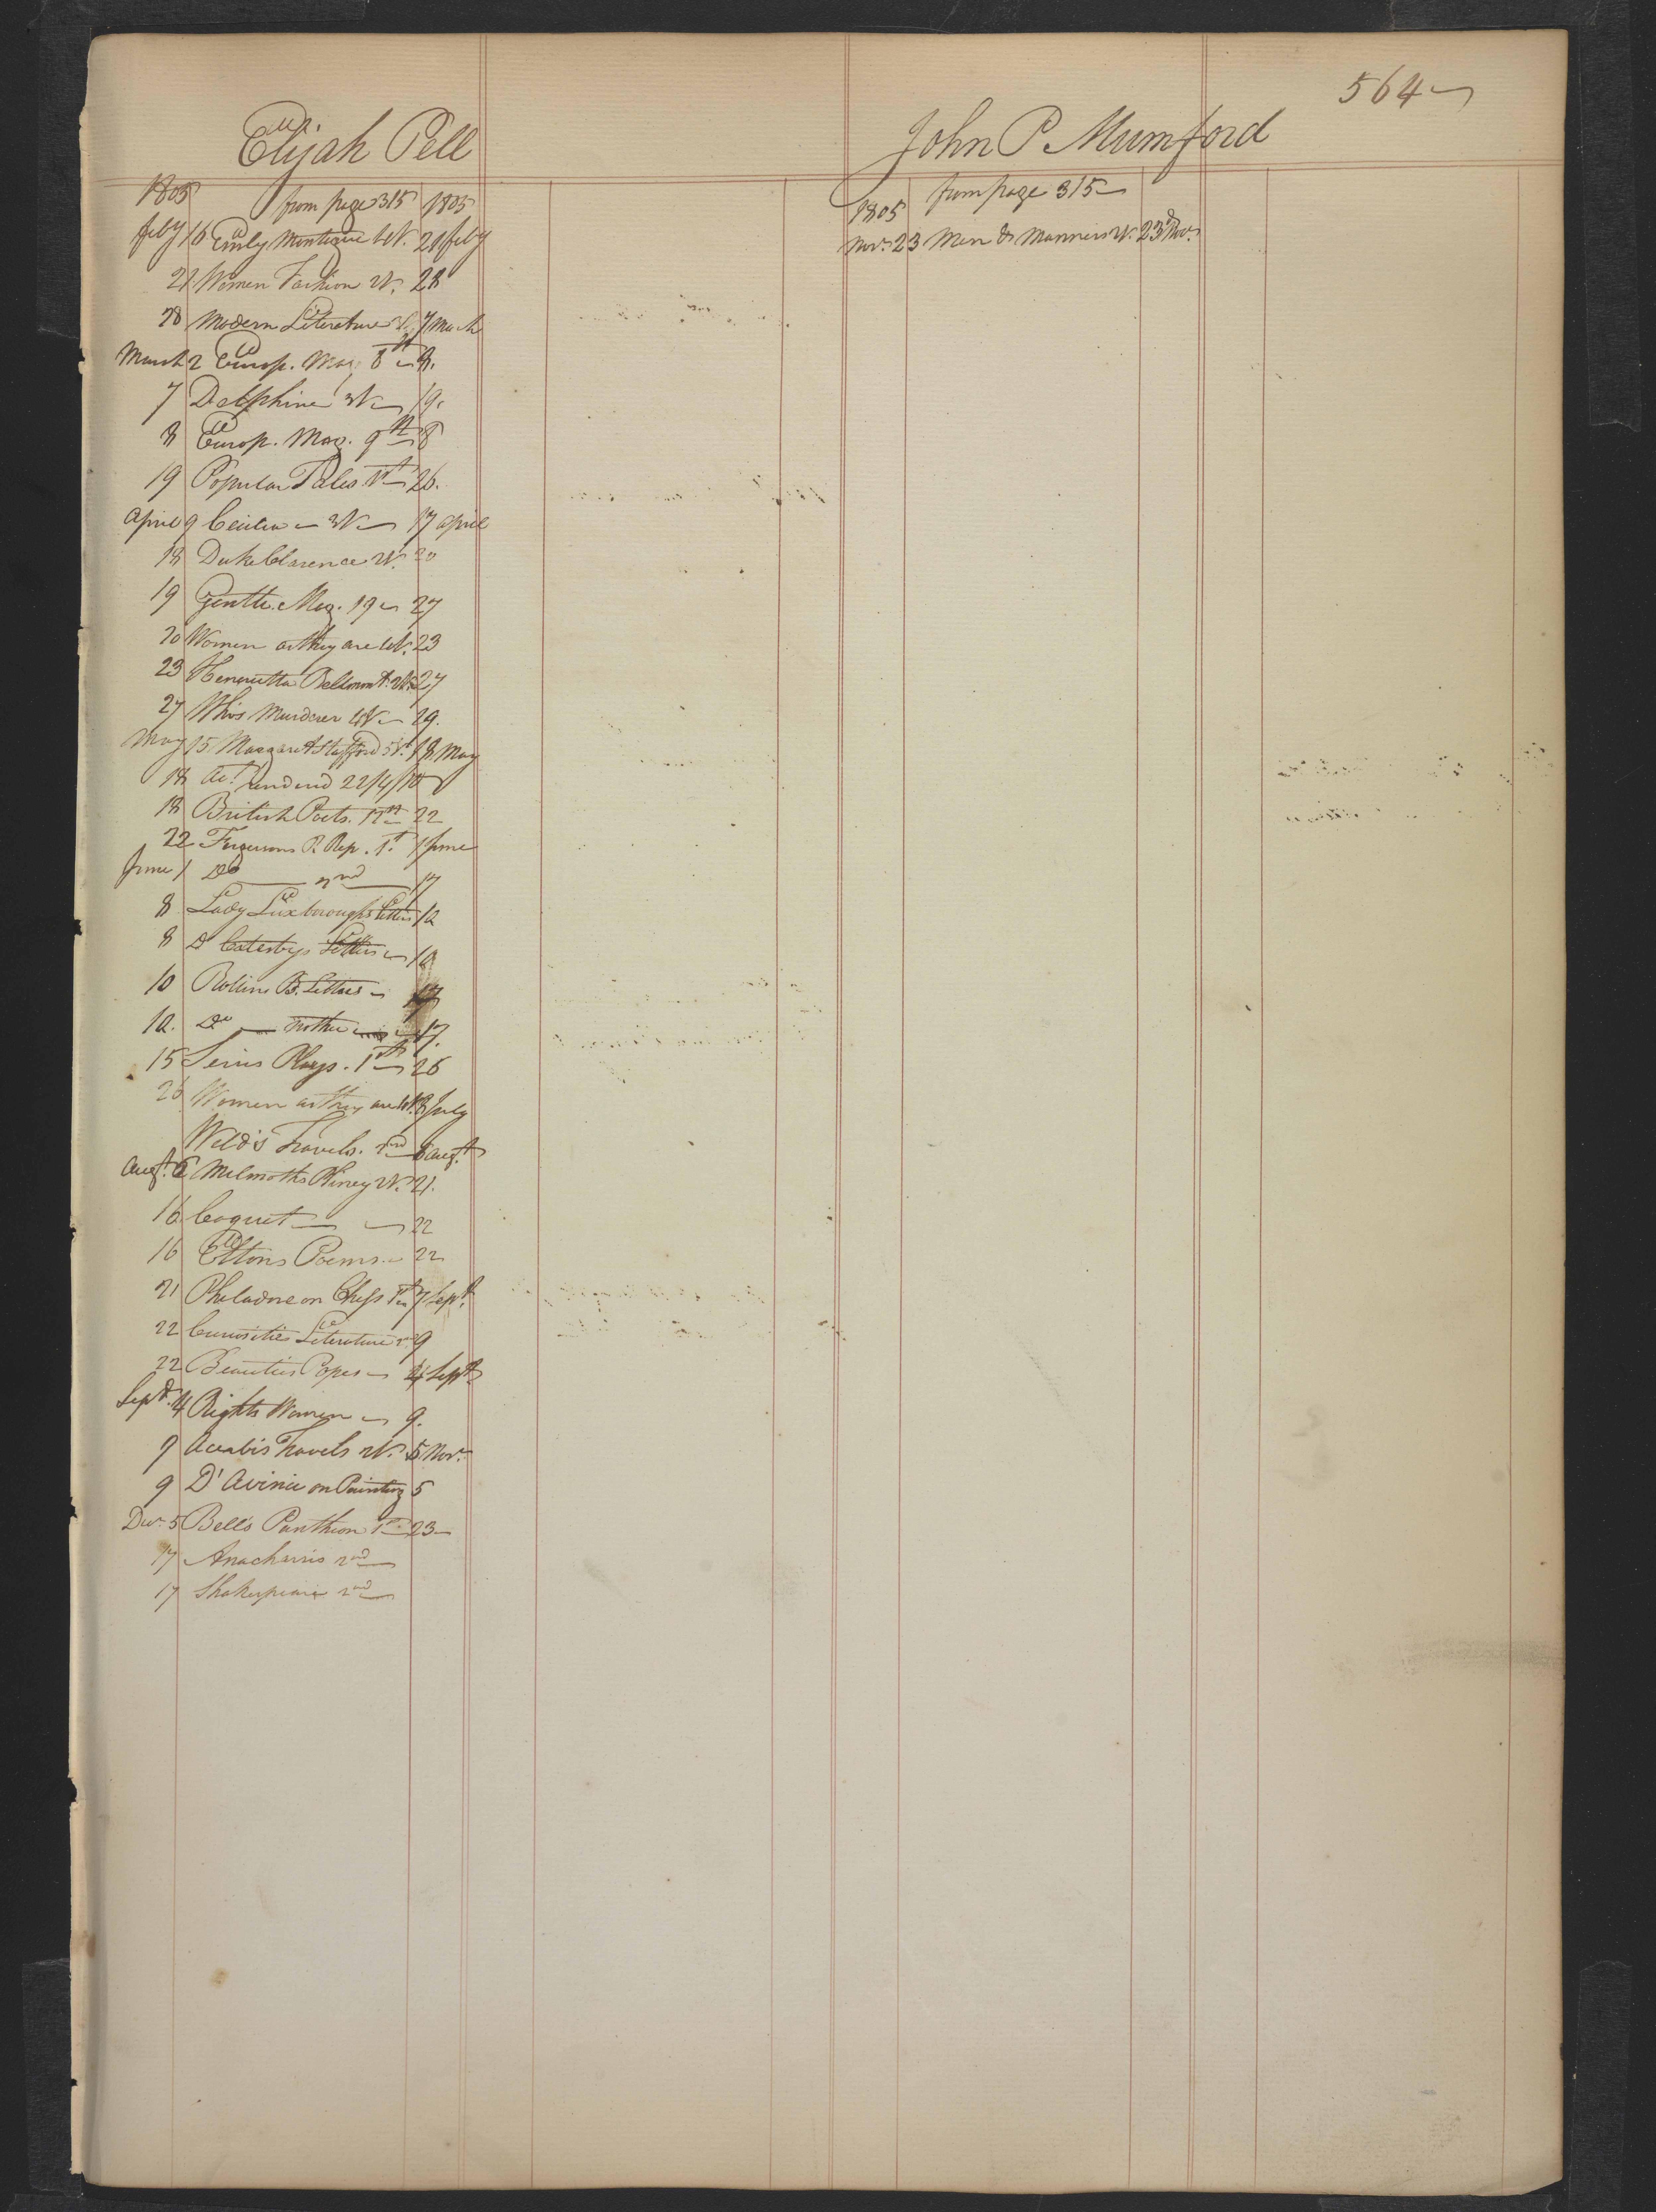 564
Elijah Pell
1805 from page 315 1805
feby 16 Emily Montague 4V. 21 feby
21 Women Fashion 2V. 28
28 Modern Literature 7 March
March 2 Europ. Mag. 8th 8.
7 Delphine 3V 19.
8 Europ. Mag. 9th 8
19 Popular Tales. 1st 26.
April 9 Cecilia 3V 17 April
18 Duke Clarence 2V. 20
19 Gentle. Mag. 19 27
20 Women as they are 4V. 23
23 Henrietta Bellmont. 2V. 27
27 Who's Murderer 4V 29.
May 15 Margaret Stafford 5V. 18 May
18 Act. rendered 22/4/10
18 British Poets. 12th 22
22 Fergusons R. Rep. 1st. 1 June
June 1 Do 2nd 17
8 Lady Luxboroughs Letters 12
8 Do Catesbys Letters 10
10 Rollins B. Letters 17
12. Do 17.
15 Series Plays. 1st 26
26 Women as they are 4V. 8 July
Weld's Travels. 2nd 6 Augt.
Augt. 6 Melmoths Pliney 2V. 21.
16 Coquet 22
16 Eltons Poems. 22
21 Philadore on Chess 1st 7 Sept.
22 Curiosities Literature 2nd 9
22 Beauties Popes 4 Sept
Sept. 4 Rights Women 9.
9 Acerbis Travels 2V. 5 Nov.
9 D'Avinci on Painting 5
Dec. 5 Bells Pantheon 1st 23
17 Anacharsis 2nd
17 Shakespeare 2nd
John P. Mumford
1805 from page 315
Nov. 23 Men & Manners 4V. 23d Nov.